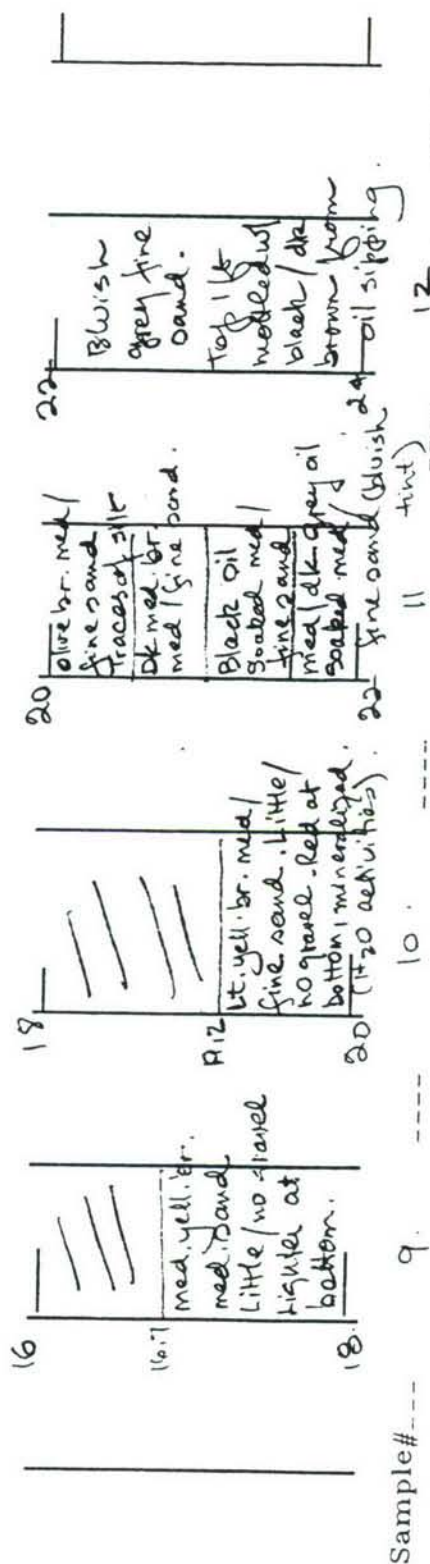 16
16.7
med. yell. br.
med. sand
Little/no gravel
Lighter at
bottom.
18.
18
19.2
Lt. yell. br. med/
fine sand. Little/
no gravel. Red at
bottom, mineralized.
(H20 activities).
20
20
olive br. med/
fine sand
traces of silt
Dk med. br.
med/fine sand.
Black oil
soaked med/
fine sand
med/dk. grey oil
soaked med/
22 fine sand (bluish
tint)
22
Bluish
grey fine
sand.
Top 1 ft
mottled w/
black/dk
brown from
24 oil sipping.
Sample#--- 9. ---- 10. ---- 11 12